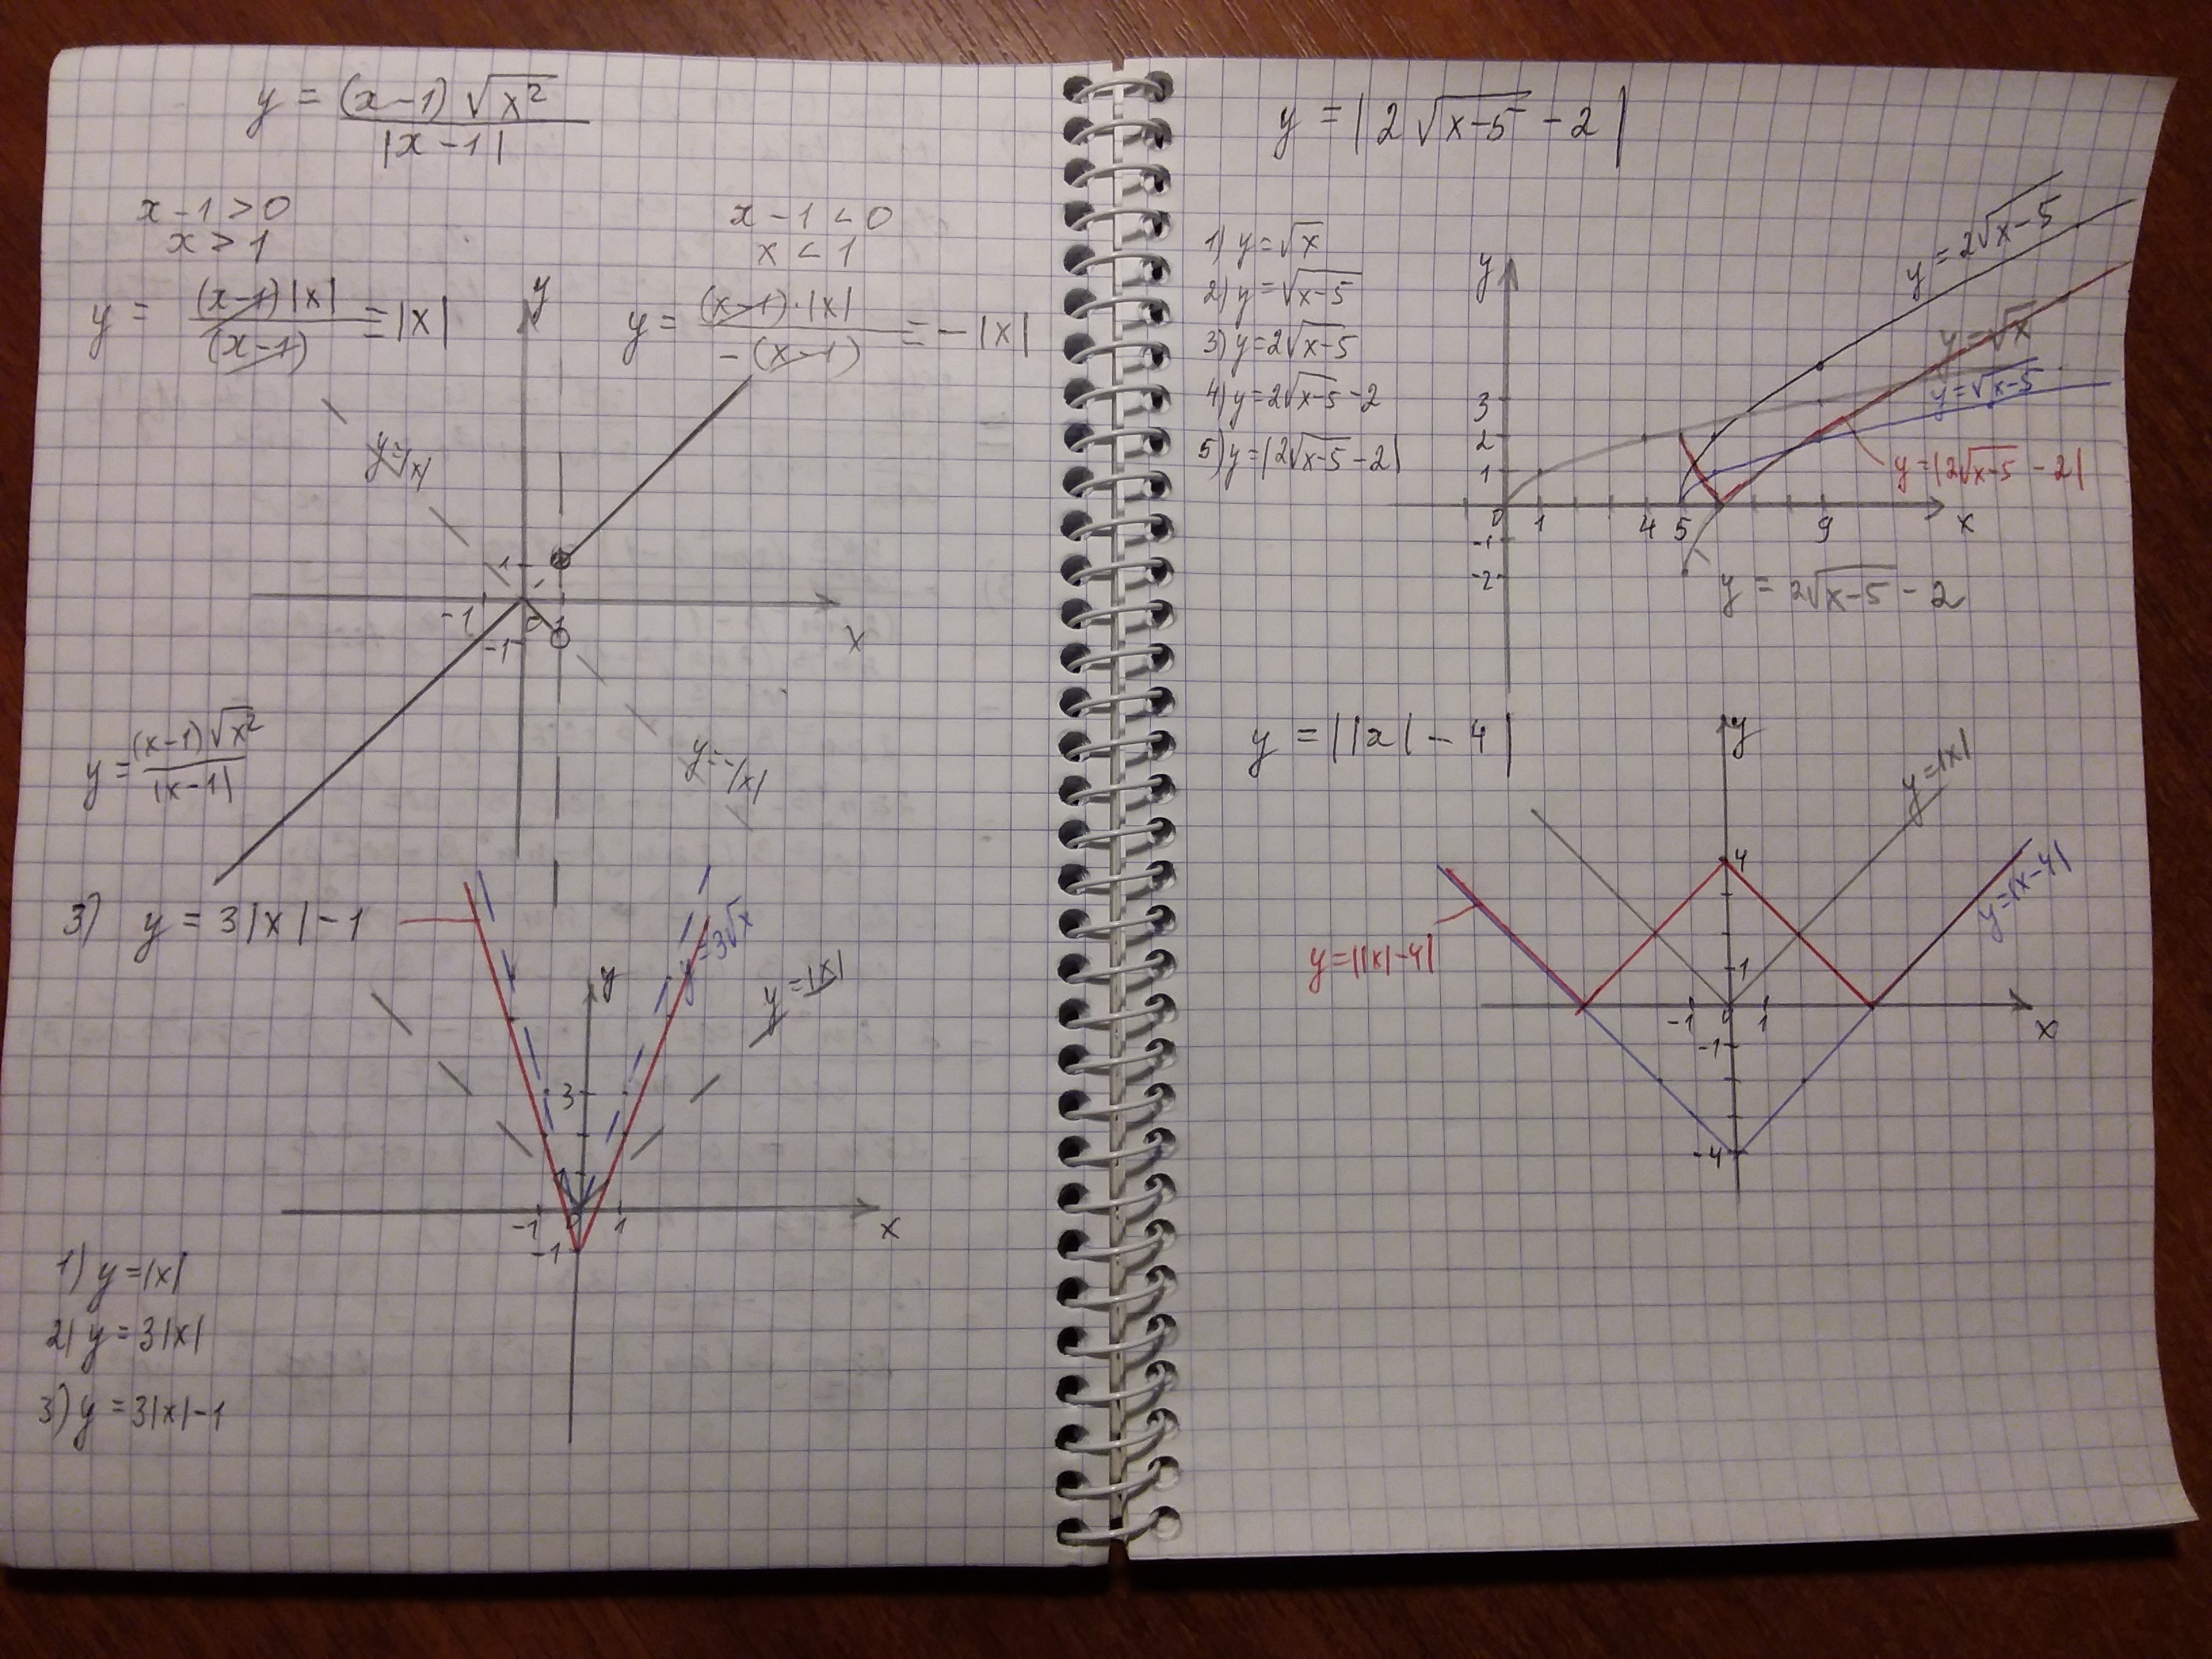 y = (x-1)√x² / |x-1|
x-1>0
x>1
y = (x-1)|x| / (x-1) = |x|
x-1<0
x<1
y = (x-1)·|x| / -(x-1) = -|x|
y
y=|x|
1
-1 0 1
-1
x
y=-|x|
y = (x-1)√x² / |x-1|
3) y = 3|x|-1
y=3√x
y=|x|
y
3
1
-1 0 1
-1
x
1) y=|x|
2) y=3|x|
3) y=3|x|-1
y = |2√x-5 - 2|
1) y=√x
2) y=√x-5
3) y=2√x-5
4) y=2√x-5 -2
5) y=|2√x-5 -2|
y
y=2√x-5
y=√x
y=√x-5
y=|2√x-5 -2|
3
2
1
0 1 4 5 9 x
-1
-2
y = 2√x-5 - 2
y = ||x| - 4|
y
y=|x|
4
y=|x-4|
y=||x|-4|
1
-1 0 1
x
-1
-4